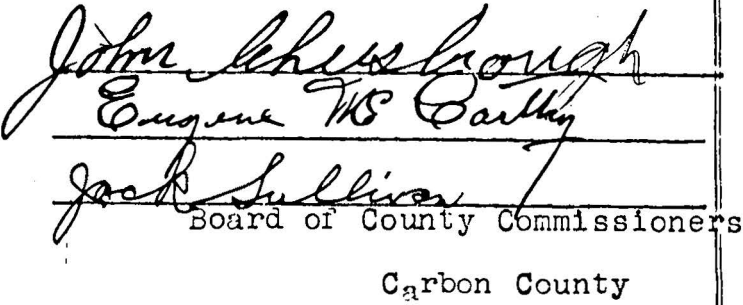 John Cheesbrough
Eugene Mc Carthy
Jack Sullivan
Board of County Commissioners
Carbon County